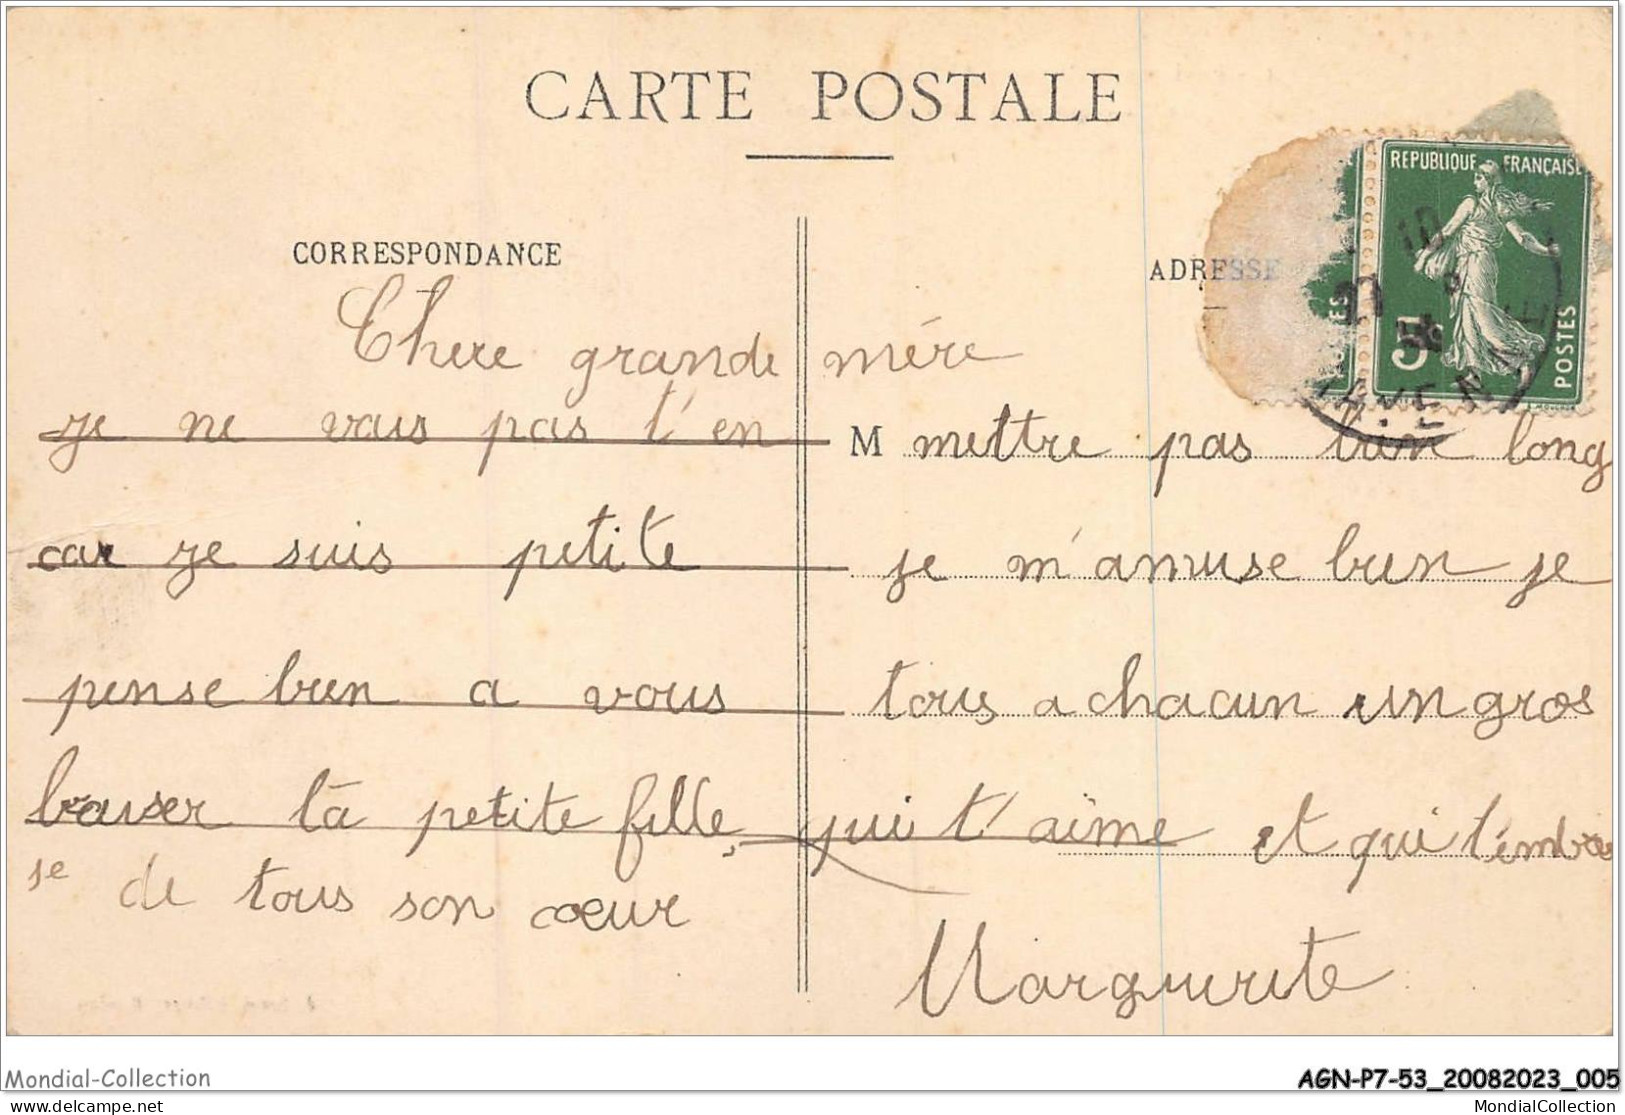 CARTE POSTALE
CORRESPONDANCE
ADRESSE
REPUBLIQUE FRANÇAISE
POSTES
5
Chere grande mére
je ne vais pas t'en M mettre pas bien long
car je suis petite je m'amuse bien je
pense bien a vous tous a chacun un gros
baiser ta petite fille, qui t'aime et qui t'embras
se de tous son cœur
Marguerite
Mondial-Collection
AGN-P7-53_20082023_005
delcampe.net
MondialCollection